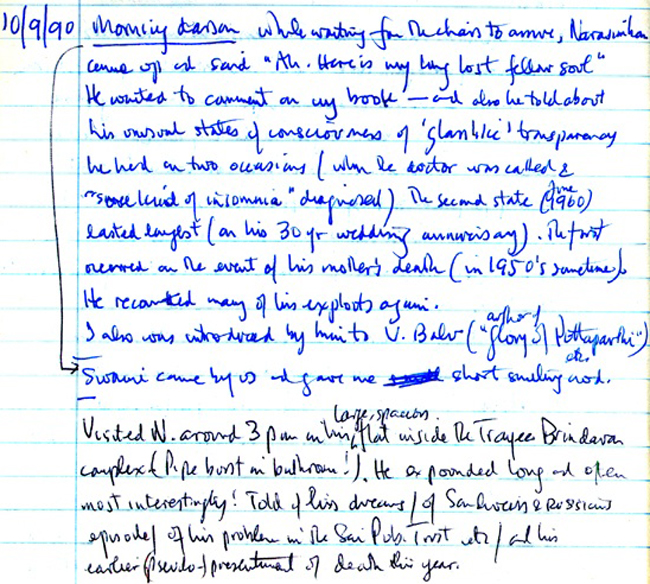 10/9/90 Morning darsan while waiting for the chairs to arrive, Narasimhan
came up and said "Ah. Here is my long lost fellow soul"
He wanted to comment on my book — and also he told about
his unusual states of consciousness of 'glasslike' transparency
he had on two occasions (when the doctor was called &
"some kind of insomnia" diagnosed) The second state (June 1960)
lasted longest (on his 30 yr wedding anniversary). The first
occurred on the event of his mother's death (in 1950's sometime).
He recounted many of his exploits again.
I also was introduced by him to V. Balu (author of "Glory of Puttaparthi") etc.
Swami came by us and gave me short smiling nod.
Visited N. around 3 pm in his large, spacious flat inside the Trayee Brindavan
complex (Pipe burst in bathroom!). He expounded long and open
most interestingly! Told of his dreams / of & Russians
episode / of his problem in the Sai Pub. Trust etc / and his
earlier (pseudo-) presentiment of death this year.